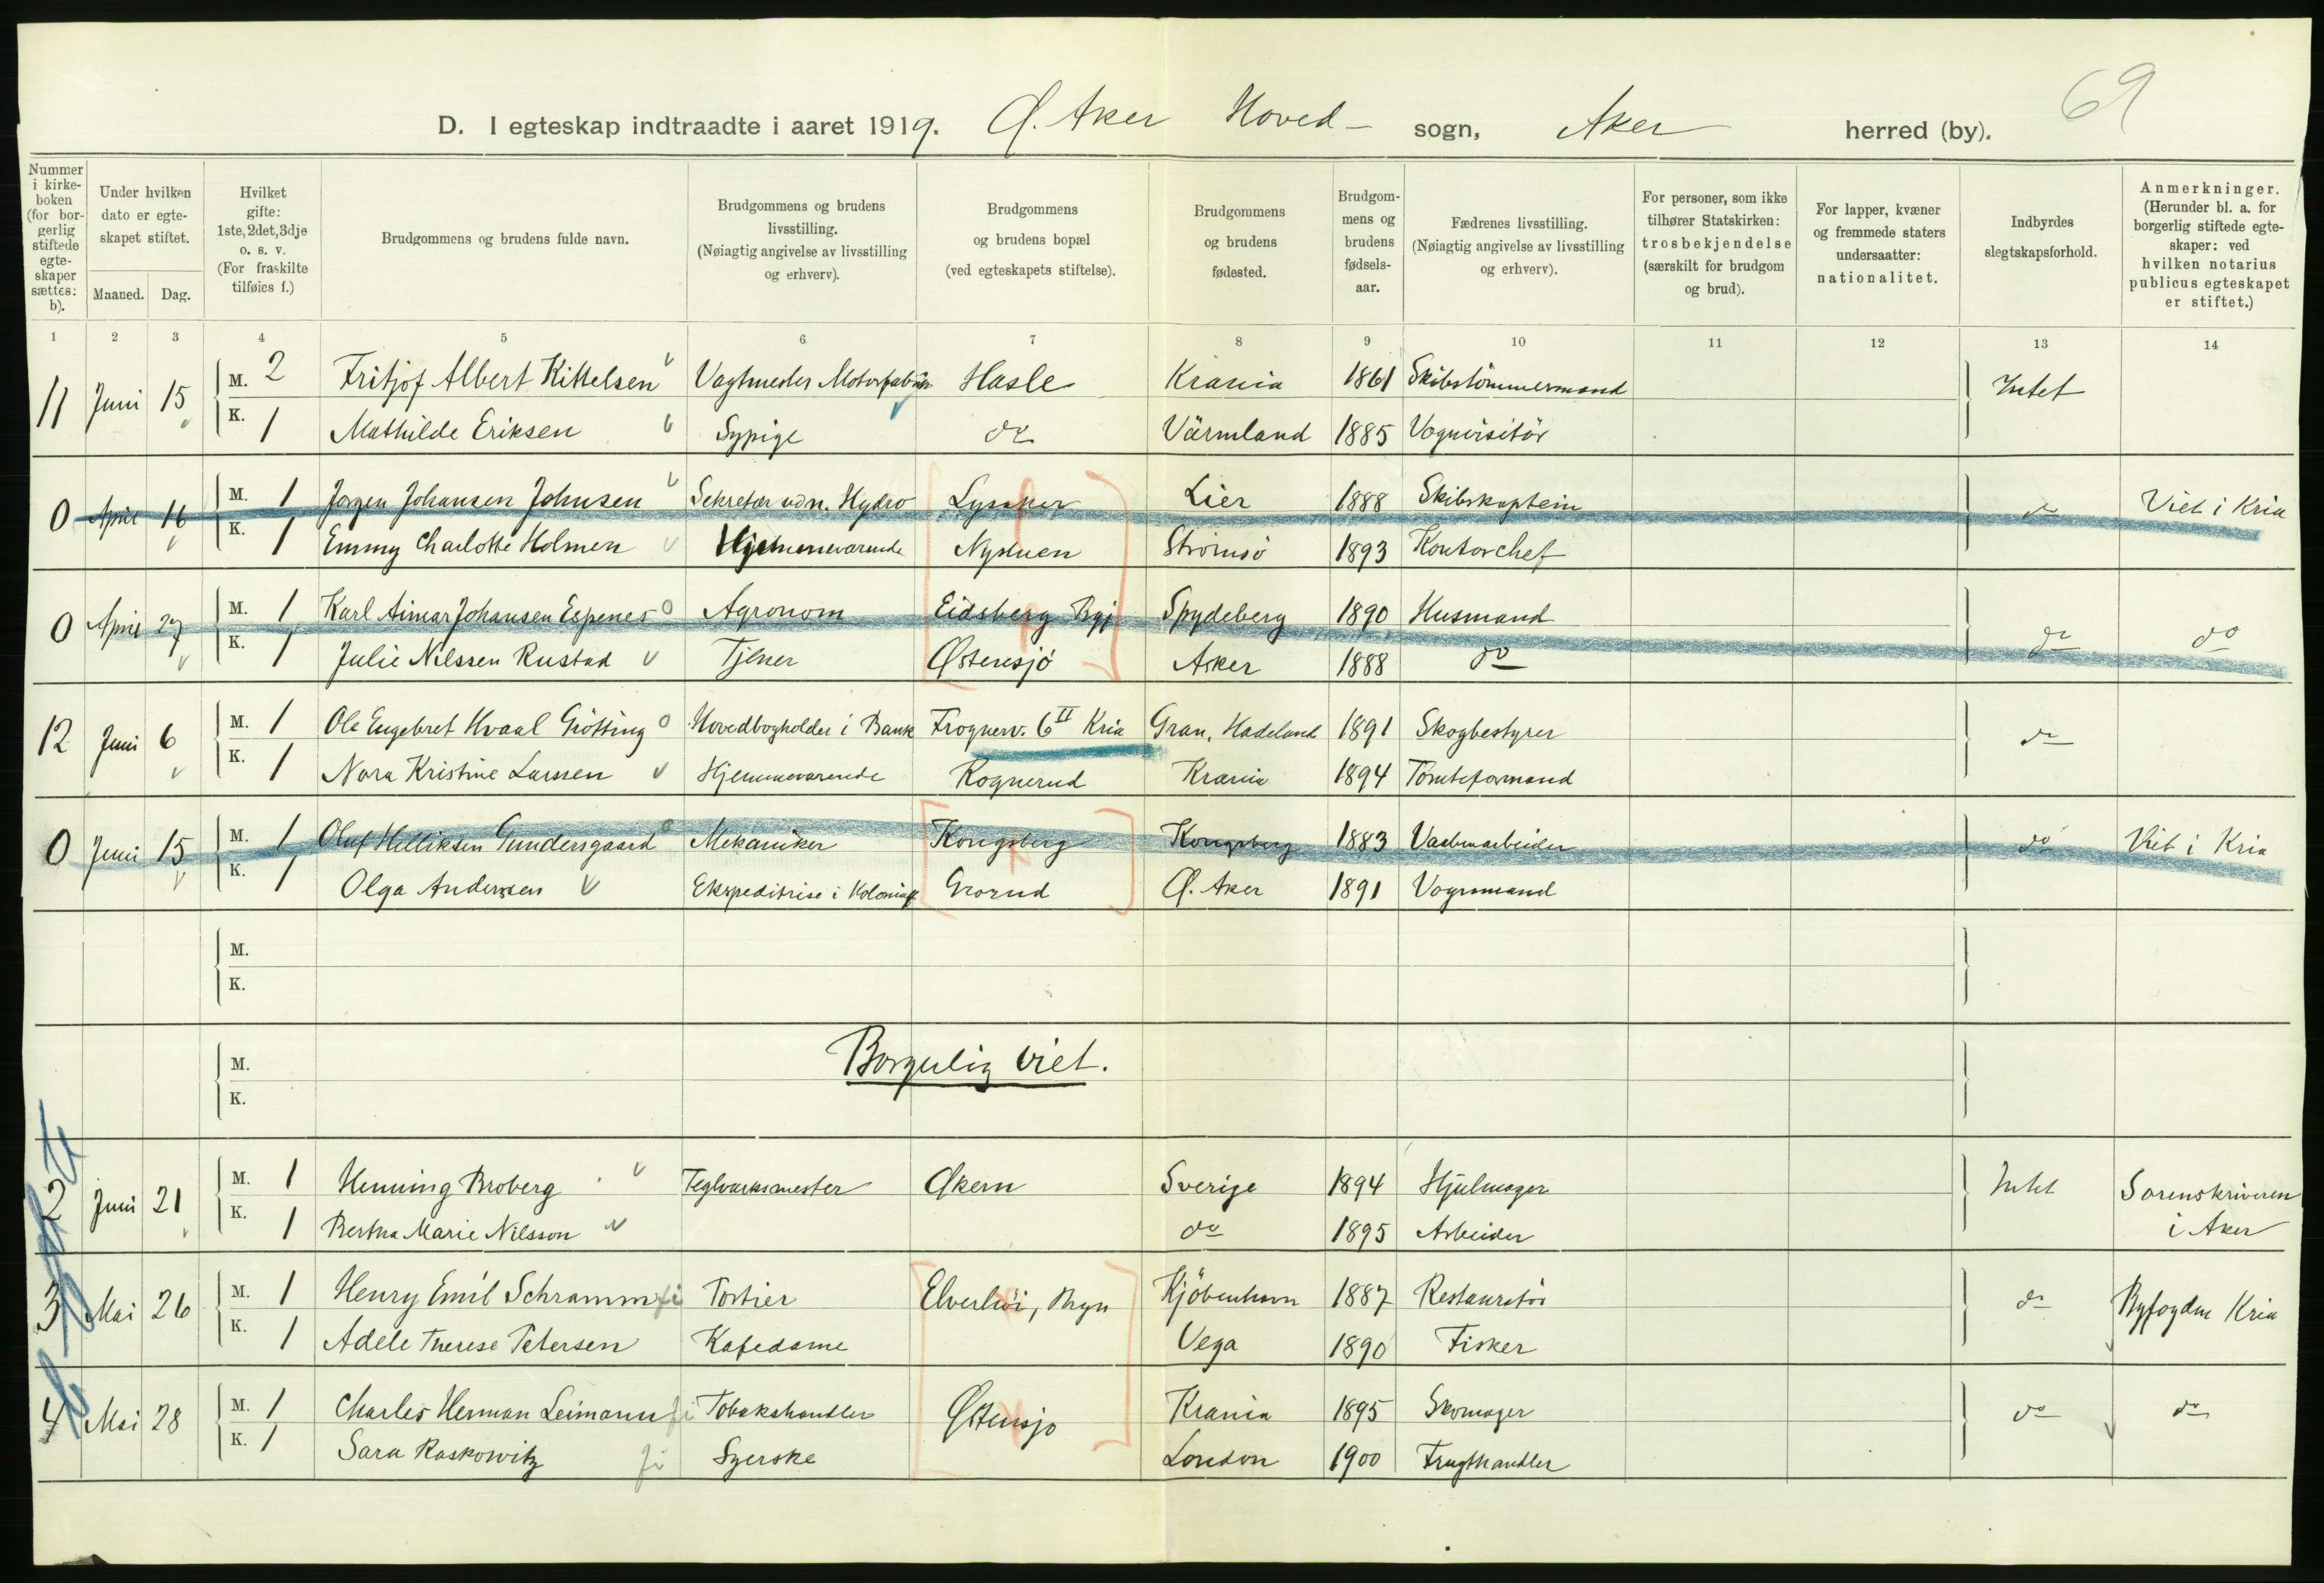 69
D. I egteskap indtraadte i aaret 1919. Ø. Aker Hoved- sogn, Aker herred (by).
Nummer i kirke-boken (for bor-gerlig stiftede egte-skaper sættes: b).
Under hvilken dato er egte-skapet stiftet.
Maaned. Dag.
Hvilket gifte: 1ste, 2det, 3dje o. s. v. (For fraskilte tilføies f.)
Brudgommens og brudens fulde navn.
Brudgommens og brudens livsstilling. (Nøiagtig angivelse av livsstilling og erhverv).
Brudgommens og brudens bopæl (ved egteskapets stiftelse).
Brudgommens og brudens fødested.
Brudgom-mens og brudens fødsels-aar.
Fædrenes livsstilling. (Nøiagtig angivelse av livsstilling og erhverv).
For personer, som ikke tilhører Statskirken: trosbekjendelse (særskilt for brudgom og brud).
For lapper, kvæner og fremmede staters undersaatter: nationalitet.
Indbyrdes slegtskapsforhold.
Anmerkninger. (Herunder bl. a. for borgerlig stiftede egte-skaper: ved hvilken notarius publicus egteskapet er stiftet.)
1 2 3 4 5 6 7 8 9 10 11 12 13 14
11 Juni 15 M. 2 Fritjof Albert Kittelsen Vagtmester Motorfabrik Hasle Krania 1861 Skibstömmermand Intet
K. 1 Mathilde Eriksen Sypige do Värmland 1885 Vognvisitör
0 April 16 M. 1 Jørgen Johansen Johnsen Sekretær v. n. Hydro Lysaker Lier 1888 Skibskaptein do Viet i Kria
K. 1 Emmy Charlotte Holmen Hjemmeværende Nyduen Strömsö 1893 Kontorchef
0 April 27 M. 1 Karl Aimar Johansen Espenes Agronom Eidsberg Bgj Spydeberg 1890 Husmand do do
K. 1 Julie Nilssen Rustad Tjener Østensjö Asker 1888 do
12 Juni 6 M. 1 Ole Engebret Hvaal Götting Hovedbogholder i Bank Frognerv. 6 II Kria Gran, Hadeland 1891 Skogbestyrer do
K. 1 Nora Kristine Larssen Hjemmeværende Rognerud Krania 1894 Tomteformand
0 Juni 15 M. 1 Oluf Helliksen Gundersgaard Mekaniker Kongsberg Kongsberg 1883 Vaabenarbeider do Viet i Kria
K. 1 Olga Andersen Ekspeditrise i Kolonialf Grorud Ø. Aker 1891 Vognmand
M.
K.
M. Borgerlig viet.
K.
2 Juni 21 M. 1 Henning Broberg Teglværksmester Økern Sverige 1894 Hjulmager Intet Sorenskriveren
K. 1 Bertha Marie Nilsson do 1895 Arbeider i Aker
3 Mai 26 M. 1 Henry Emil Schramm Portier Elverhöi, Bryn Kjöbenhavn 1887 Restauratör do Byfogden Kria
K. 1 Adele Therese Petersen Kafedame Vega 1890 Fisker
4 Mai 28 M. 1 Charles Herman Leimann Tobakshandler Østensjo Krania 1895 Skomager do do
K. 1 Sara Raskowitz Syerske London 1900 Frugthandler